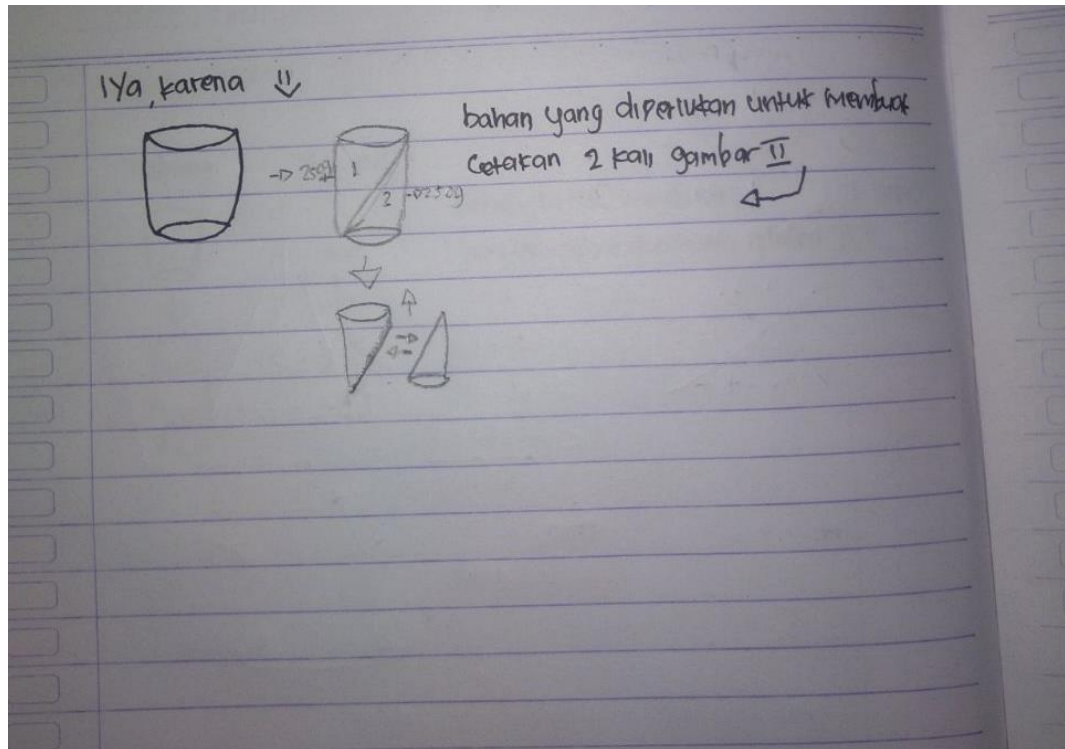 Iya, karena
bahan yang diperlukan untuk membuat
Cetakan 2 kali gambar II
250g
1
2
250g